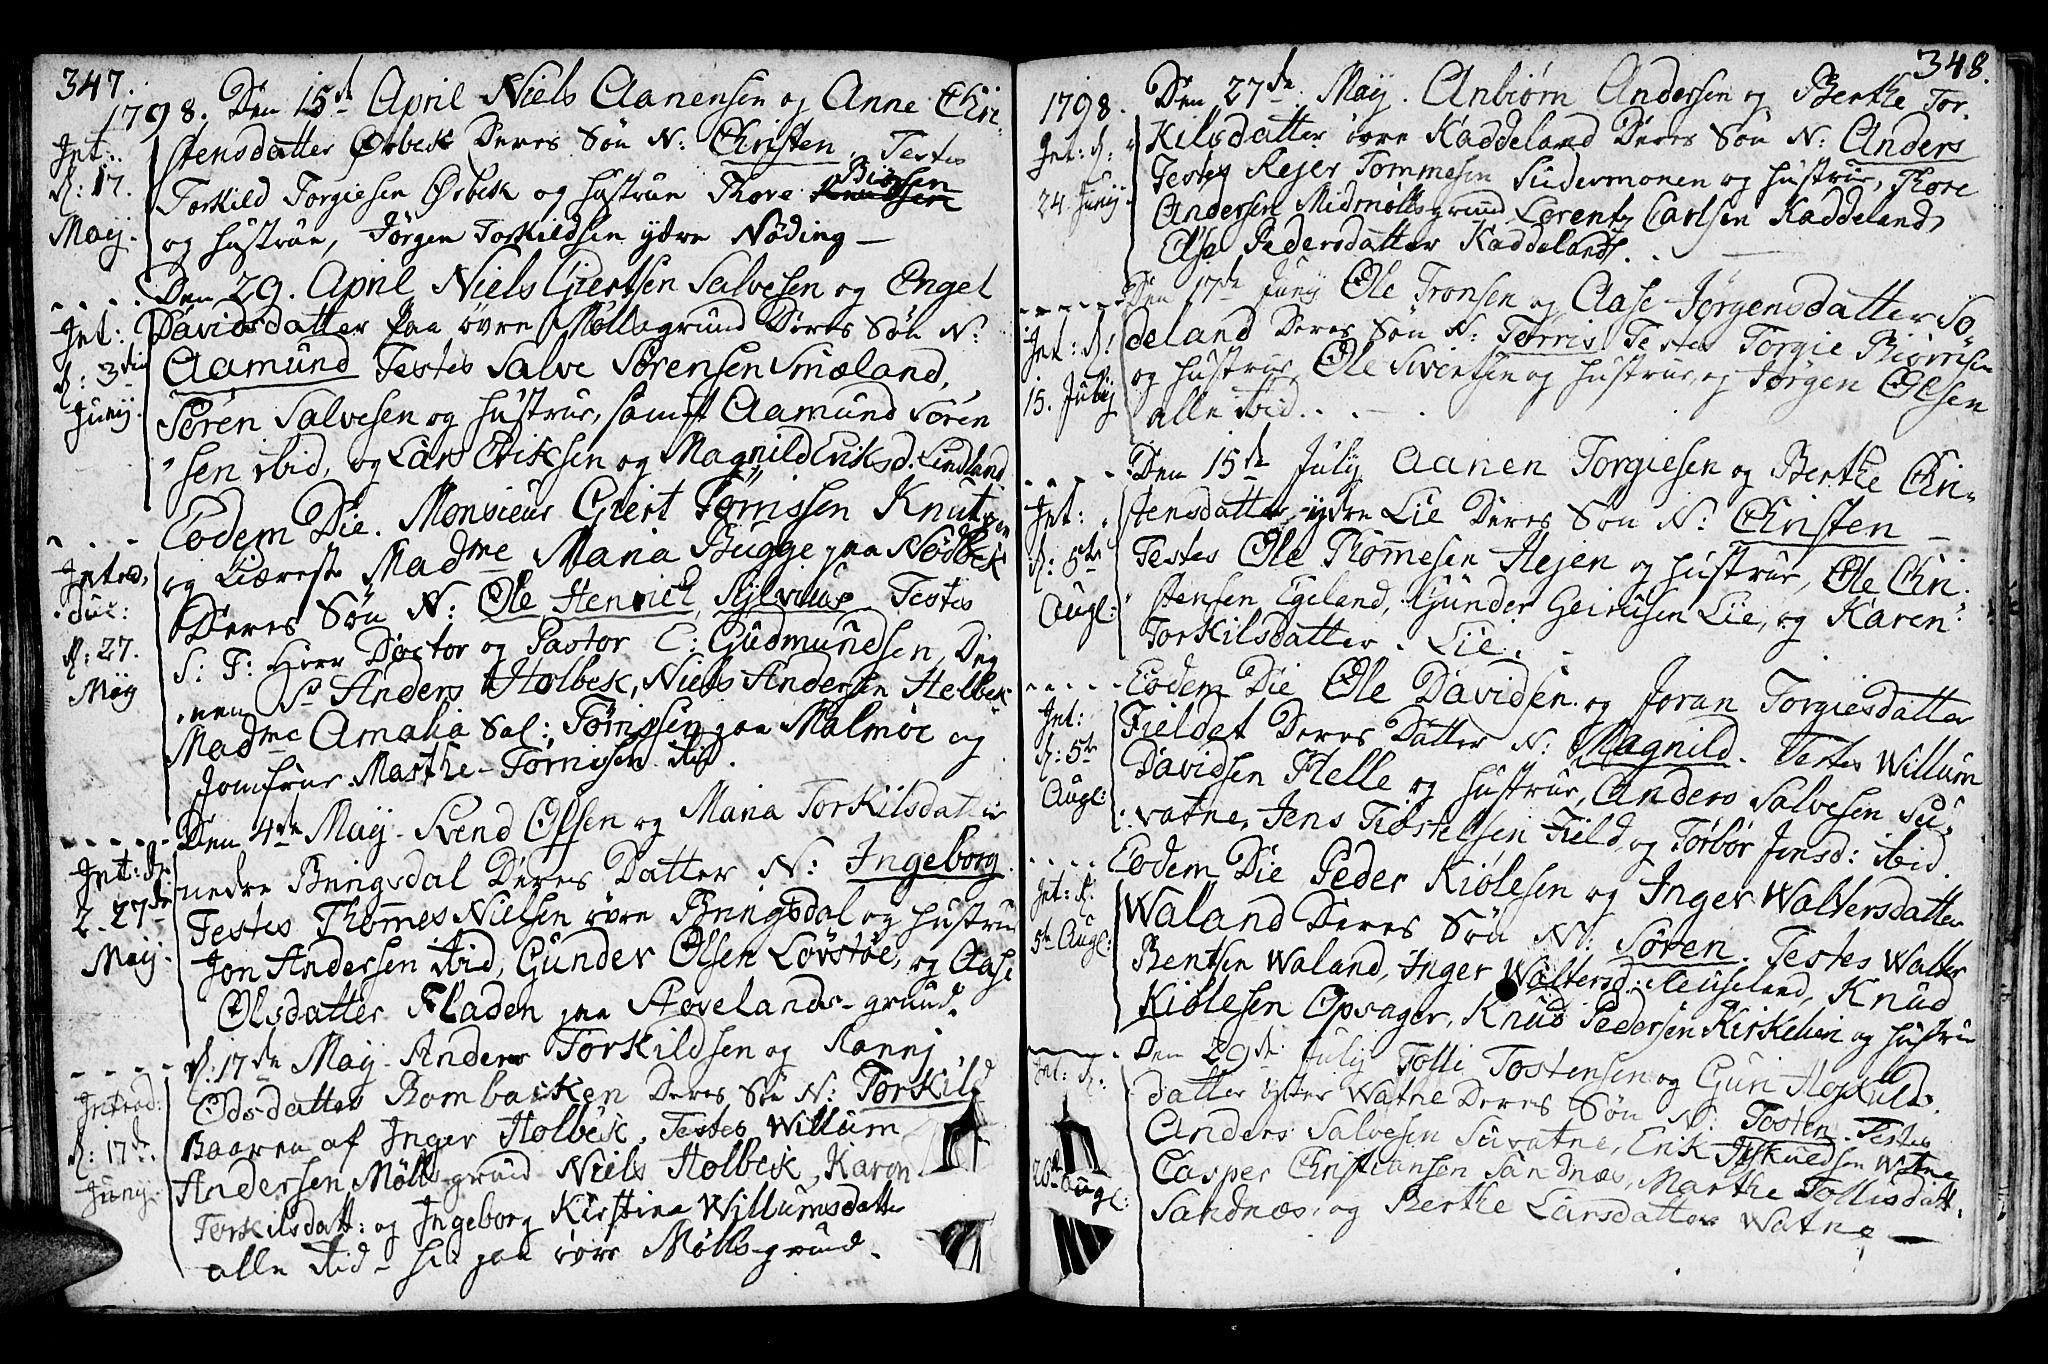 347.
1798. Den 15de April Niels Aanensen og Anne Chri-
Int:. stensdatter Ørbek Deres Sön N: Christen. Testes
d: 17. Torkild Torgiesen Ørbek og hustrue Thore Biösen
Maij. og hustrue, Jörgen Torkildsen ydre Nöding —
Den 29. April Niels Giertsen Salvesen og Engel
Int: Davidsdatter paa övre Möllegrund Deres Sön N:
d: 3die Aamund Testes Salve Sörensen Smæland,
Junij. Sören Salvesen og hustrue, samt Aamund Sören
sen ibid, og Lars Eriksen og Magnild Eriksd. Lindland.
Eodem Die. Monsieur Giert Törrissen Knutzen
og Kiæreste Madme Maria Bugge paa Nödbek
Introd, Deres Sön N: Ole Henrich Testes
duc: S: T: Herr Doctor og Pastor C: Gudmundsen,
d: 27. Sr Anders Holbek, Niels Andersen Holbek
Maij Madme Amalia Sal: Törrissen paa Malmöe og
Jomfrue Marthe Törrisen ibid.
Den 4de Maij. Svend Olsen og Maria Torkilsdatter
Int: d: nedre Bringsdal Deres Datter N: Ingeborg.
2. 27de Testes Thommes Nielsen övre Bringsdal og hustrue
Maij. Jon Andersen ibid, Gunder Olsen Lövstöe, og Aase
Olsdatter Fladen paa Stovelands-grund.
d: 17de Maij. Anders Torkildsen og Ranni
Introd: Edsdatter Rombakken Deres Sön N: Torkild
Baaren af Inger Holbek. Testes Willum
d: 17de Andersen Mölls-grund Niels Holbek, Karen
Junij. Torkilsdatt: og Ingeborg Kirstine Willumsdatter
alle ibid - paa övre Mölls-grund.
348.
1798. Den 27de Maij. Anbiörn Andersen og Berthe Tor-
Int: d: kilsdatter övre Kaddeland Deres Sön N: Anders
24. Junij. Testes Rejer Tommesen Sudermonen og hustrue, Thore
Andersen Midmöllsgrund Lorentz Carlsen Kaddeland,
Else Pedersdatter Kaddeland.
Den 17de Junij Ole Tronsen og Aase Jörgensdatter Sö-
Int: d: deland Deres Sön N: Törris Testes Torgie Biörnsen
15. Julij og hustrue, Ole Sivertsen og hustrue, og Jörgen Olsen
alle ibid.
Den 15de Julij Aanen Torgiesen og Berthe Chri-
Int: stensdatter ydre Lie Deres Sön N: Christen —
d: 5te Testes Ole Thommesen Hejen og hustrue, Ole Chri-
Augl: stensen Egeland, Gunder Geirusen Lie, og Karen
Torkilsdatter. Lie.
Eodem Die Ole Davidsen og Joran Torgiesdatter
Int: Fieldet Deres Datter N: Magnild. Testes Willum
d: 5te Davidsen Helle og hustrue, Anders Salvesen Su-
Augl: vatne, Jens Tiöstelsen Field, og Törbör Jensd: ibid
Eodem Die Peder Kiölesen og Inger Woltersdatter
Int: d: Waland Deres Sön N: Sören. Testes Wolter
5te Augl: Bentsen Waland, Inger Woltersd: , Knud
Kiölesen Opsager, Knud Pedersen Kirkelien og hustrue
Den 29de Julij Tolli Tostensen og Guri Hoskulds-
Int: d: datter Watne Deres Sön N: Tosten. Testes
26de Augl: Anders Salvesen Suvatne, Erik Watne
Casper Christiansen Sandnæs, Marthe Tollisdatt.
Sandnæs, og Berthe Larsdatter Watne —